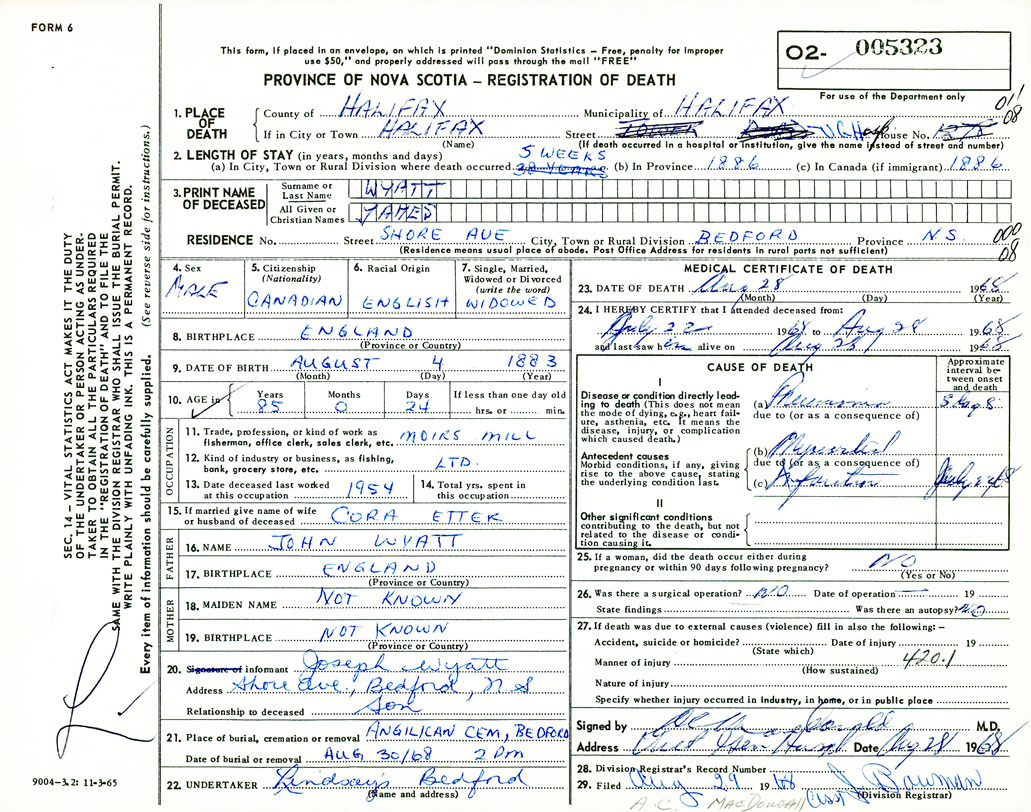 FORM 6
This form, if placed in an envelope, on which is printed "Dominion Statistics – Free, penalty for improper
use $50," and properly addressed will pass through the mail "FREE"
O2- 005323
PROVINCE OF NOVA SCOTIA – REGISTRATION OF DEATH
For use of the Department only
011
08
1. PLACE OF DEATH
County of HALIFAX Municipality of HALIFAX
If in City or Town HALIFAX Street V.G. Hosp House No.
(Name) (If death occurred in a hospital or institution, give the name instead of street and number)
2. LENGTH OF STAY (in years, months and days) 5 WEEKS
(a) In City, Town or Rural Division where death occurred 38 YEARS (b) In Province 1886 (c) In Canada (if immigrant) 1886
3. PRINT NAME OF DECEASED
Surname or Last Name WYATT
All Given or Christian Names JAMES
RESIDENCE No. Street SHORE AVE City, Town or Rural Division BEDFORD Province N.S.
(Residence means usual place of abode. Post Office Address for residents in rural parts not sufficient)
000
08
4. Sex MALE
5. Citizenship (Nationality) CANADIAN
6. Racial Origin ENGLISH
7. Single, Married, Widowed or Divorced (write the word) WIDOWED
8. BIRTHPLACE ENGLAND
(Province or Country)
9. DATE OF BIRTH AUGUST 4 1883
(Month) (Day) (Year)
10. AGE in Years 85 Months 0 Days 24 If less than one day old hrs. or min.
OCCUPATION
11. Trade, profession, or kind of work as fisherman, office clerk, sales clerk, etc. MOIRS MILL
12. Kind of industry or business, as fishing, bank, grocery store, etc. LTD.
13. Date deceased last worked at this occupation 1954
14. Total yrs. spent in this occupation
15. If married give name of wife or husband of deceased CORA ETTER
FATHER
16. NAME JOHN WYATT
17. BIRTHPLACE ENGLAND
(Province or Country)
MOTHER
18. MAIDEN NAME NOT KNOWN
19. BIRTHPLACE NOT KNOWN
(Province or Country)
20. Signature of informant Joseph Wyatt
Address Shore Ave., Bedford, N S
Relationship to deceased Son
21. Place of burial, cremation or removal ANGILICAN CEM, BEDFORD
Date of burial or removal AUG 30/68 2 pm
22. UNDERTAKER Lindsay's Bedford
(Name and address)
MEDICAL CERTIFICATE OF DEATH
23. DATE OF DEATH Aug 28 1968
(Month) (Day) (Year)
24. I HEREBY CERTIFY that I attended deceased from:
July 22 1968 to Aug 28 1968
and last saw him alive on Aug 28 1968
CAUSE OF DEATH
Approximate interval between onset and death
I
Disease or condition directly leading to death (This does not mean the mode of dying, e.g., heart failure, asthenia, etc. It means the disease, injury, or complication which caused death.)
(a) Pneumonia 5 days
due to (or as a consequence of)
Antecedent causes
Morbid conditions, if any, giving rise to the above cause, stating the underlying condition last.
(b) Myocardial
due to (or as a consequence of)
(c) Infarction
II
Other significant conditions contributing to the death, but not related to the disease or condition causing it.
25. If a woman, did the death occur either during pregnancy or within 90 days following pregnancy? NO
(Yes or No)
26. Was there a surgical operation? NO Date of operation 19
State findings Was there an autopsy? NO
27. If death was due to external causes (violence) fill in also the following: –
Accident, suicide or homicide? Date of injury 19
(State which)
Manner of injury 420.1
(How sustained)
Nature of injury
Specify whether injury occurred in Industry, in home, or in public place
Signed by M.D.
Address Date Aug 28 1968
28. Division Registrar's Record Number
29. Filed Aug 29 1968 J. Bowman
(Division Registrar)
A.C. MACDOUGALL
SEC. 14 – VITAL STATISTICS ACT MAKES IT THE DUTY
OF THE UNDERTAKER OR PERSON ACTING AS UNDER-
TAKER TO OBTAIN ALL THE PARTICULARS REQUIRED
IN THE "REGISTRATION OF DEATH" AND TO FILE THE
SAME WITH THE DIVISION REGISTRAR WHO SHALL ISSUE THE BURIAL PERMIT.
WRITE PLAINLY WITH UNFADING INK. THIS IS A PERMANENT RECORD.
Every item of information should be carefully supplied. (See reverse side for instructions.)
9004–3.2: 11-3-65